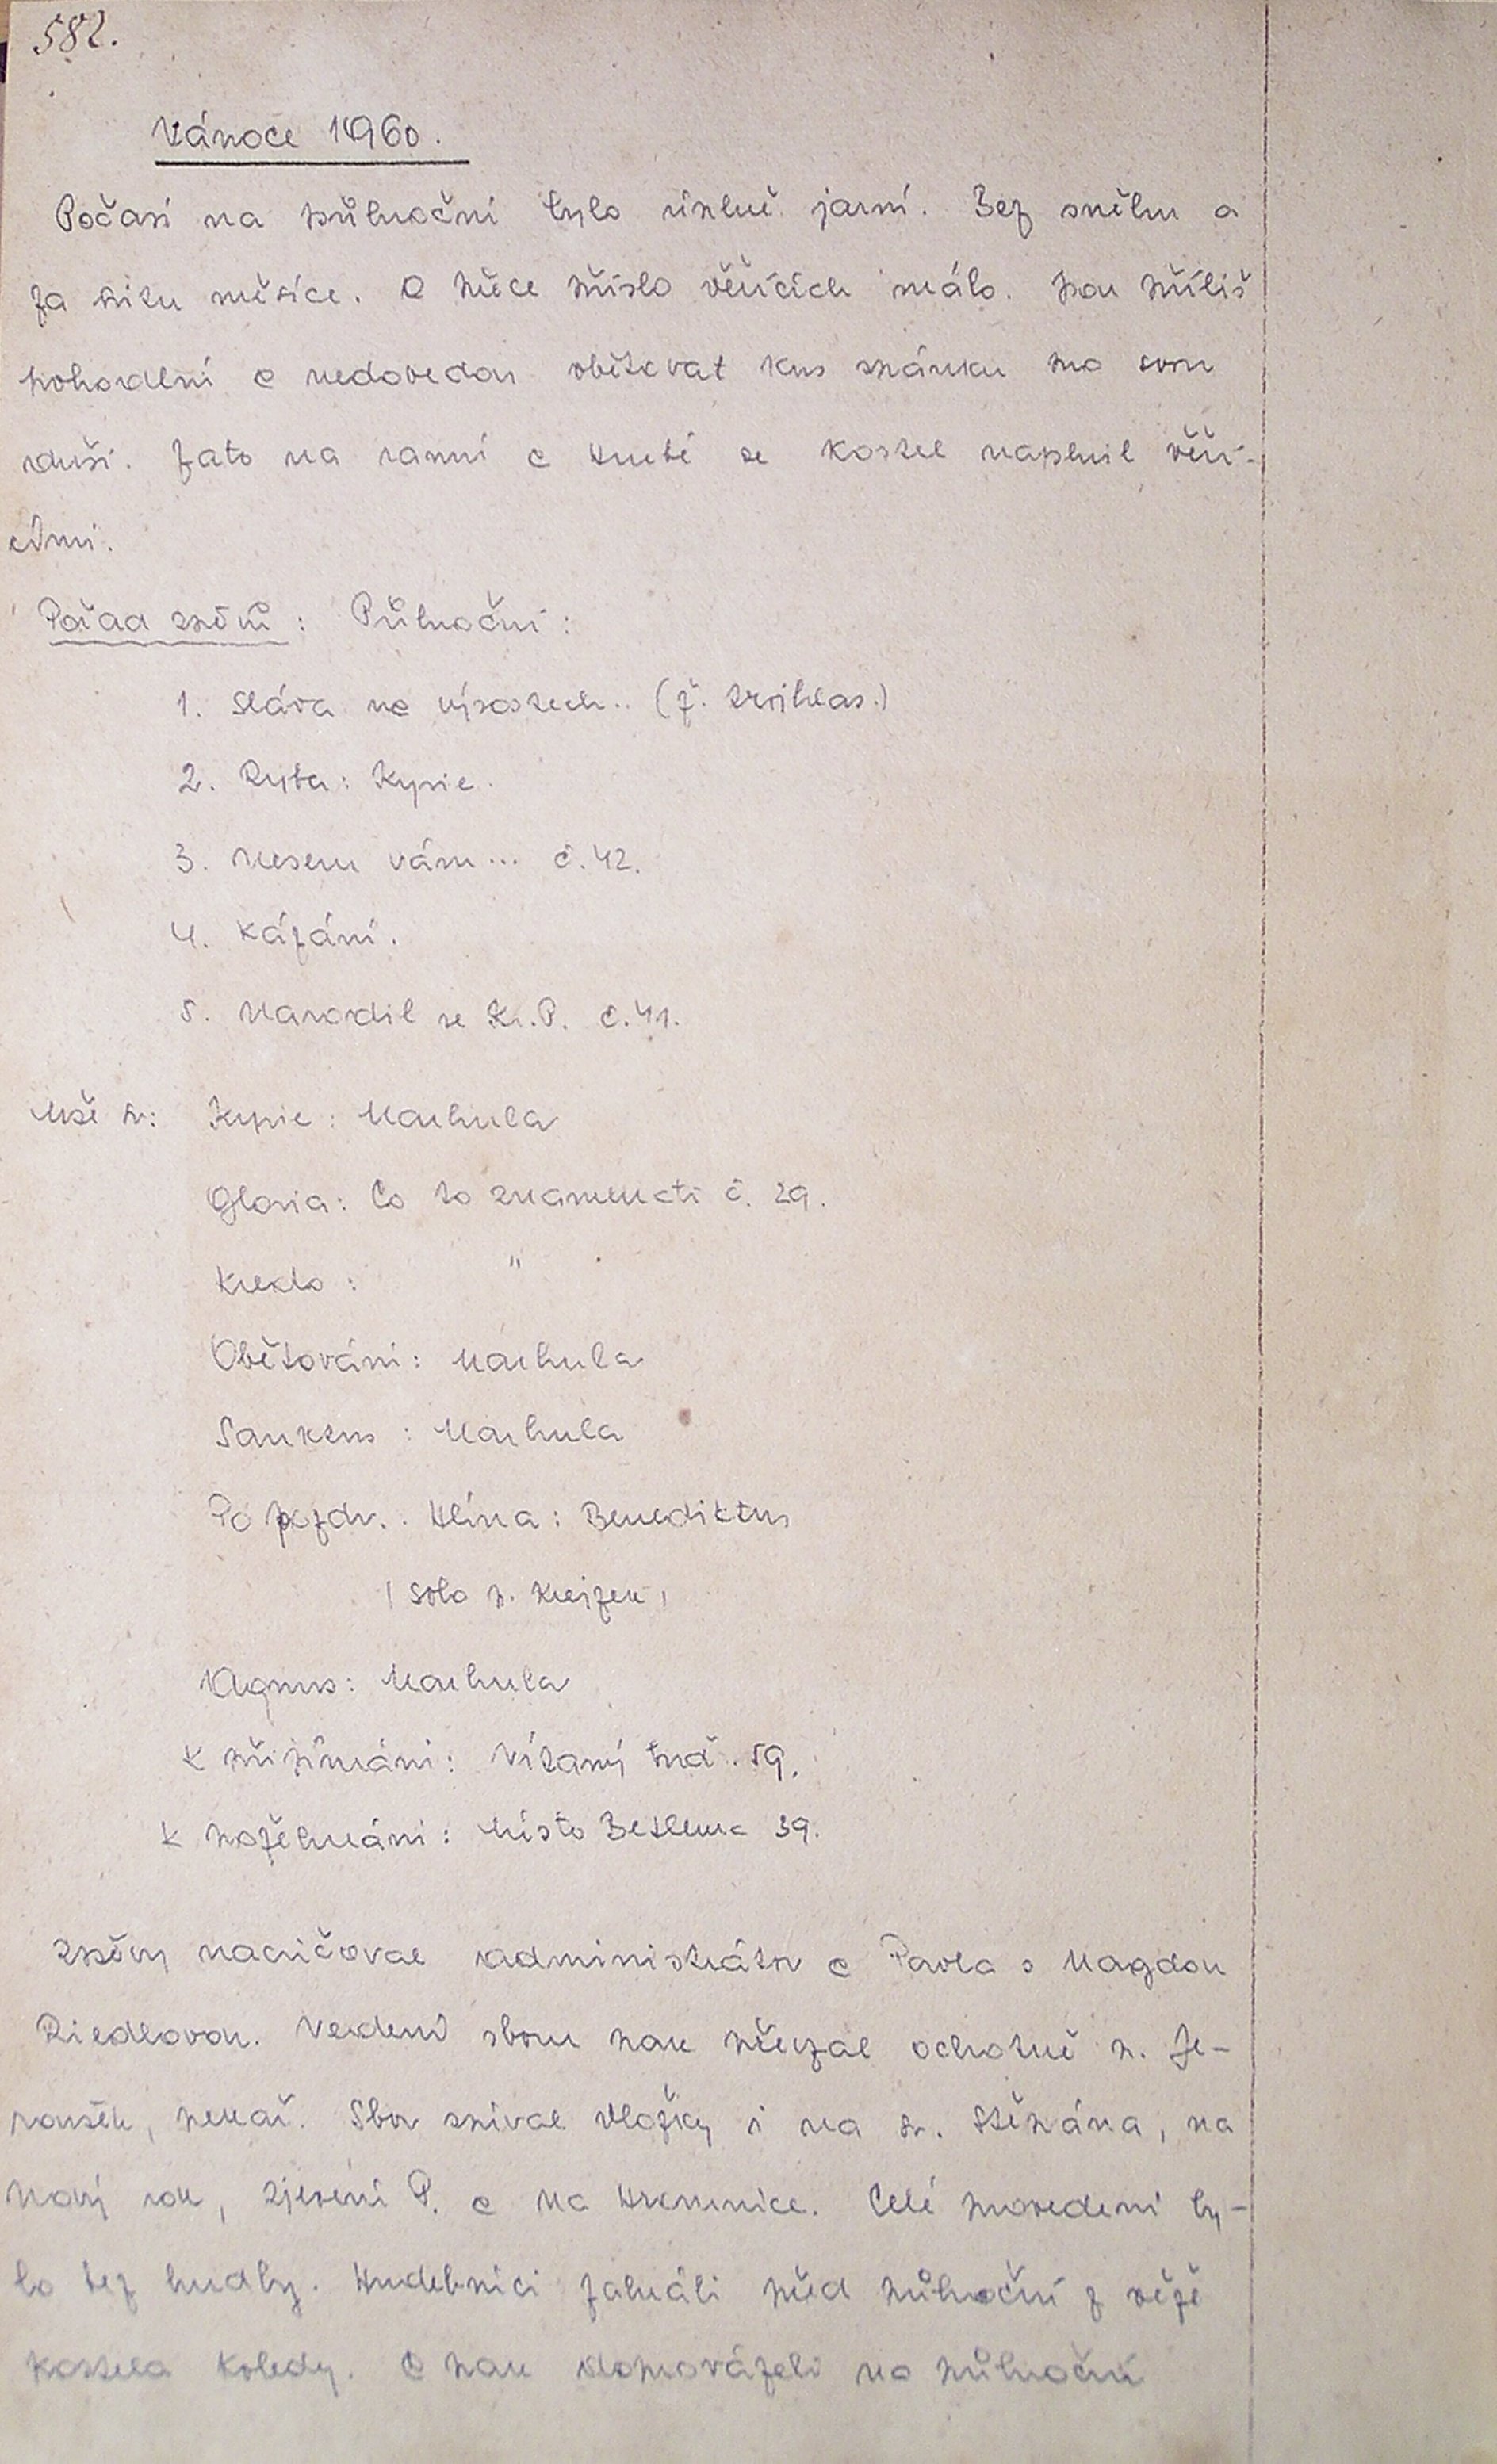 582.
Vánoce 1960.
Počasí na půlnoční bylo úplně jarní. Bez sněhu a
za svitu měsíce. A přece přišlo věřících málo. Jsou příliš
pohodlní a nedovedou obětovat kus spánku pro svou
duši. Zato na ranní a hrubé se kostel naplnil věří-
cími.
Pořad zpěvů: Půlnoční:
1. Sláva na výsostech.. (z. trojhlas.)
2. Ryba: Kyrie.
3. Nesem vám... č. 42.
4. Kázání.
5. Narodil se Kr. P. č. 41.
Mše sv: Kyrie: Machula
Gloria: Co to znamenati č. 29.
Kredo: "
Obětování: Machula
Sanktus: Machula
Po pozdv.. Hlína: Benediktus
(solo p. Krejzek)
Agnus: Machula
K přijímání: Vítaný buď. 59.
K požehnání: Místo Betléma 39.
Zpěvy nacvičoval administrátor a Pavla s Magdou
Riedlovou. Vedení sboru pak převzal ochotně p. Je-
roušek, pekař. Sbor zpíval vložky i na sv. Štěpána, na
Nový rok, Zjevení P. a na Hromnice. Celé provedení by-
lo bez hudby. Hudebníci zahráli před půlnoční z věže
kostela koledy. A pak doprovázeli na půlnoční